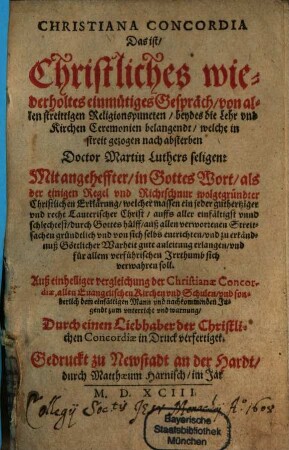 CHRISTIANA CONCORDIA
Das ist/
Christliches wie-
derholtes einmütiges Gespräch/ von al-
len streitigen Religionspuncten/ beydes die Lehr vnd
Kirchen Ceremonien belangendt/ welche in
streit gezogen nach absterben
Doctor Martin Luthers seligen:
Mit angeheffter/ in Gottes Wort/ als
der einigen Regel vnd Richtschnur wolgegründter
Christlichen Erklärung/ welcher massen ein jeder guthertziger
vnd recht Lauterischer Christ/ auffs aller einfältigst vnnd
schlechtest/ durch Gottes hülff/ auß allen verworrenen Streit-
sachen gründtlich vnd von sich selbs entrichten/ vnd zu erkänd-
nuß Göttlicher Warheit gute anleitung erlangen/ vnd
für allem verführischen Irrthumb sich
verwahren soll.
Auß einhelliger vergleichung der Christianæ Concor-
diæ allen Euangelischen Kirchen vnd Schulen/ vnd son-
derlich dem einfältigen Mann vnd nachkommenden Ju-
gendt zum vnterricht vnd warnung/
Durch einen Liebhaber der Christli-
chen Concordiæ in Druck verfertiget.
Gedruckt zu Newstadt an der Hardt/
durch Matthæum Harnisch/ im Jar
M. D. XCIII.
Collegij Soctis Jesu A° 1603
Bayerische
Staatsbibliothek
München